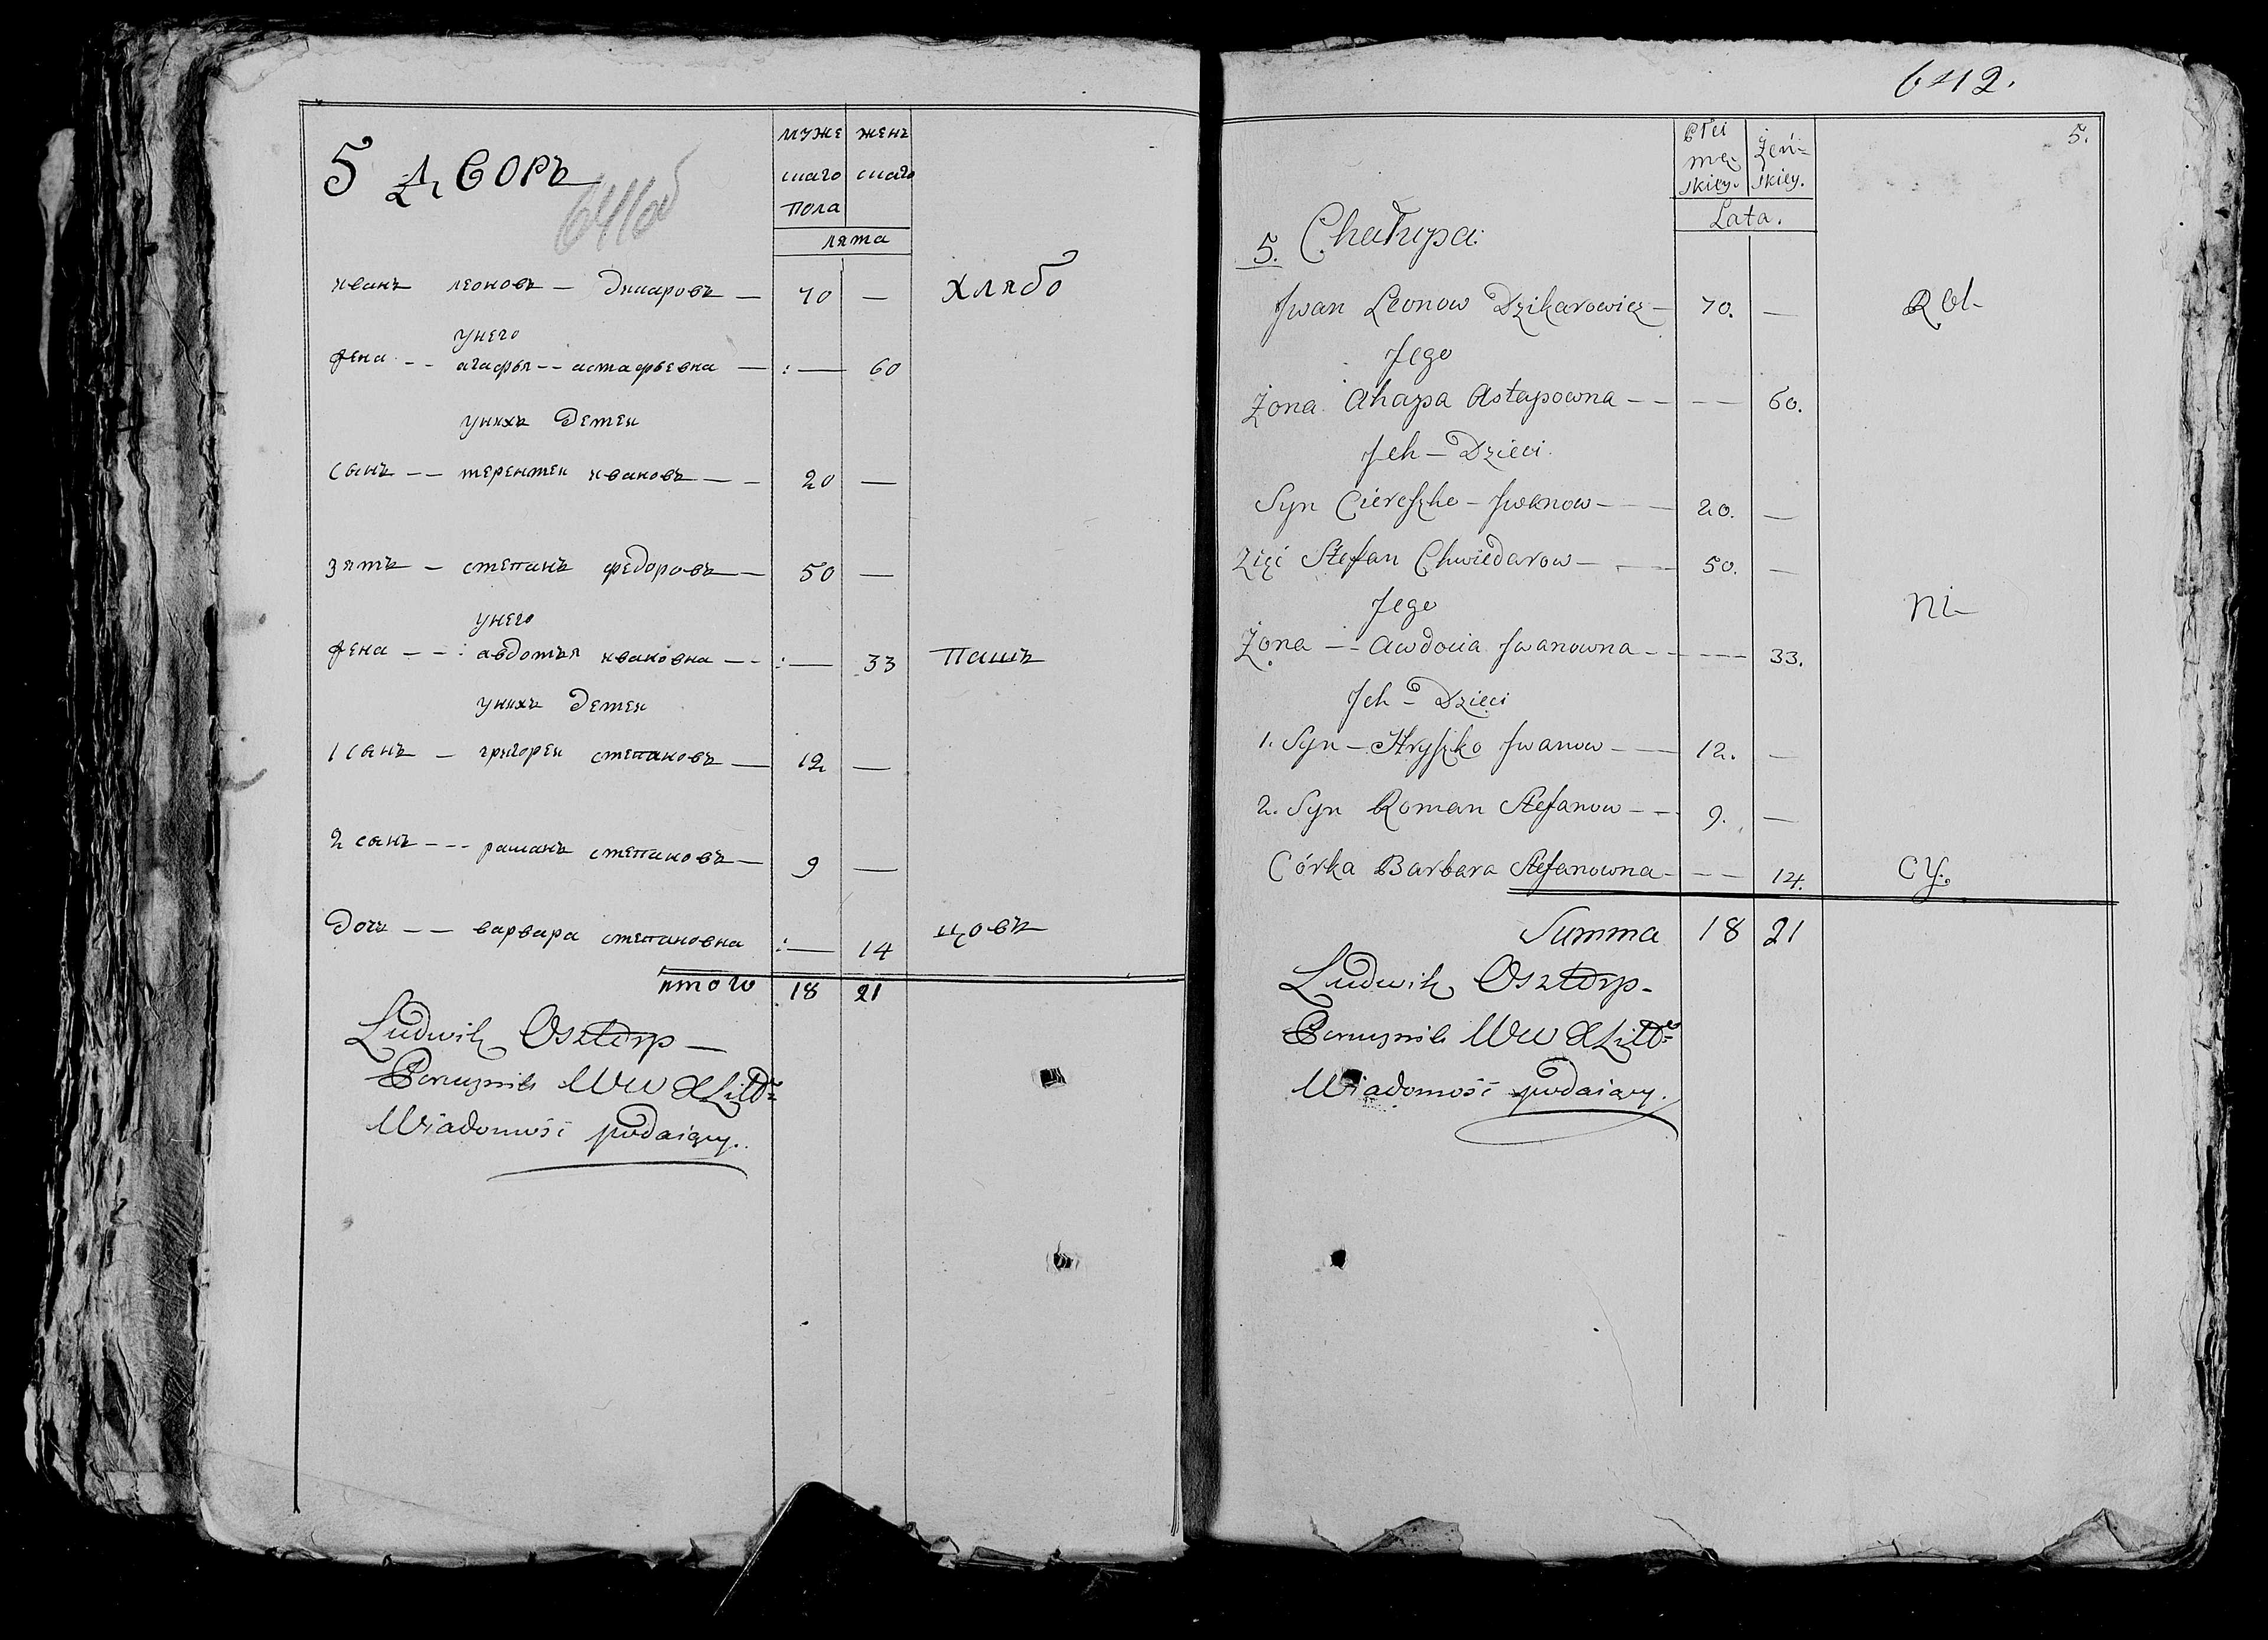 5 дворъ
641об
муже женъ
скаго скаго
пола
лята
иванъ леоновъ — дикаровъ — 70 — хлябо
унего
жена -- агафья -- астафьевна — :— 60
унихъ детеи
сынъ -- терентеи ивановъ -- 20 —
зять — степанъ федоровъ — 50 —
унего
жена --: авдотья ивановна -- :— 33 пашъ
унихъ детеи
1 сынъ — григореи степановъ — 12 —
2 сынъ --- раманъ степановъ — 9 —
дочъ -- варвара степановна :— 14 цовъ
итого 18 21
Ludwik Osztorp —
WW X Litt
Wiadomość podaiący.
642.
5.
Płci
mę- żeń-
skiey. skiey.
Lata.
5. Chałupa:
Jwan Leonow Dzikarowicz — 70. — Rol-
Jego
Żona Ahapa Astapowna -- --- 60.
Jch — Dzieci.
Syn Ciereszko — Jwanow -- 20. —
Zięć Stefan Chwiedarow — -- 50. —
Jego ni-
Żona -- Awdocia Jwanowna -- --- 33.
Jch — Dzieci
1. Syn — Hryszko Jwanow -- 12. —
2. Syn Roman Stefanow -- 9. —
Córka Barbara Stefanowna - -- 14. cy.
Summa 18 21
Ludwik Osztorp -
WW X Litt
Wiadomość podaiący.